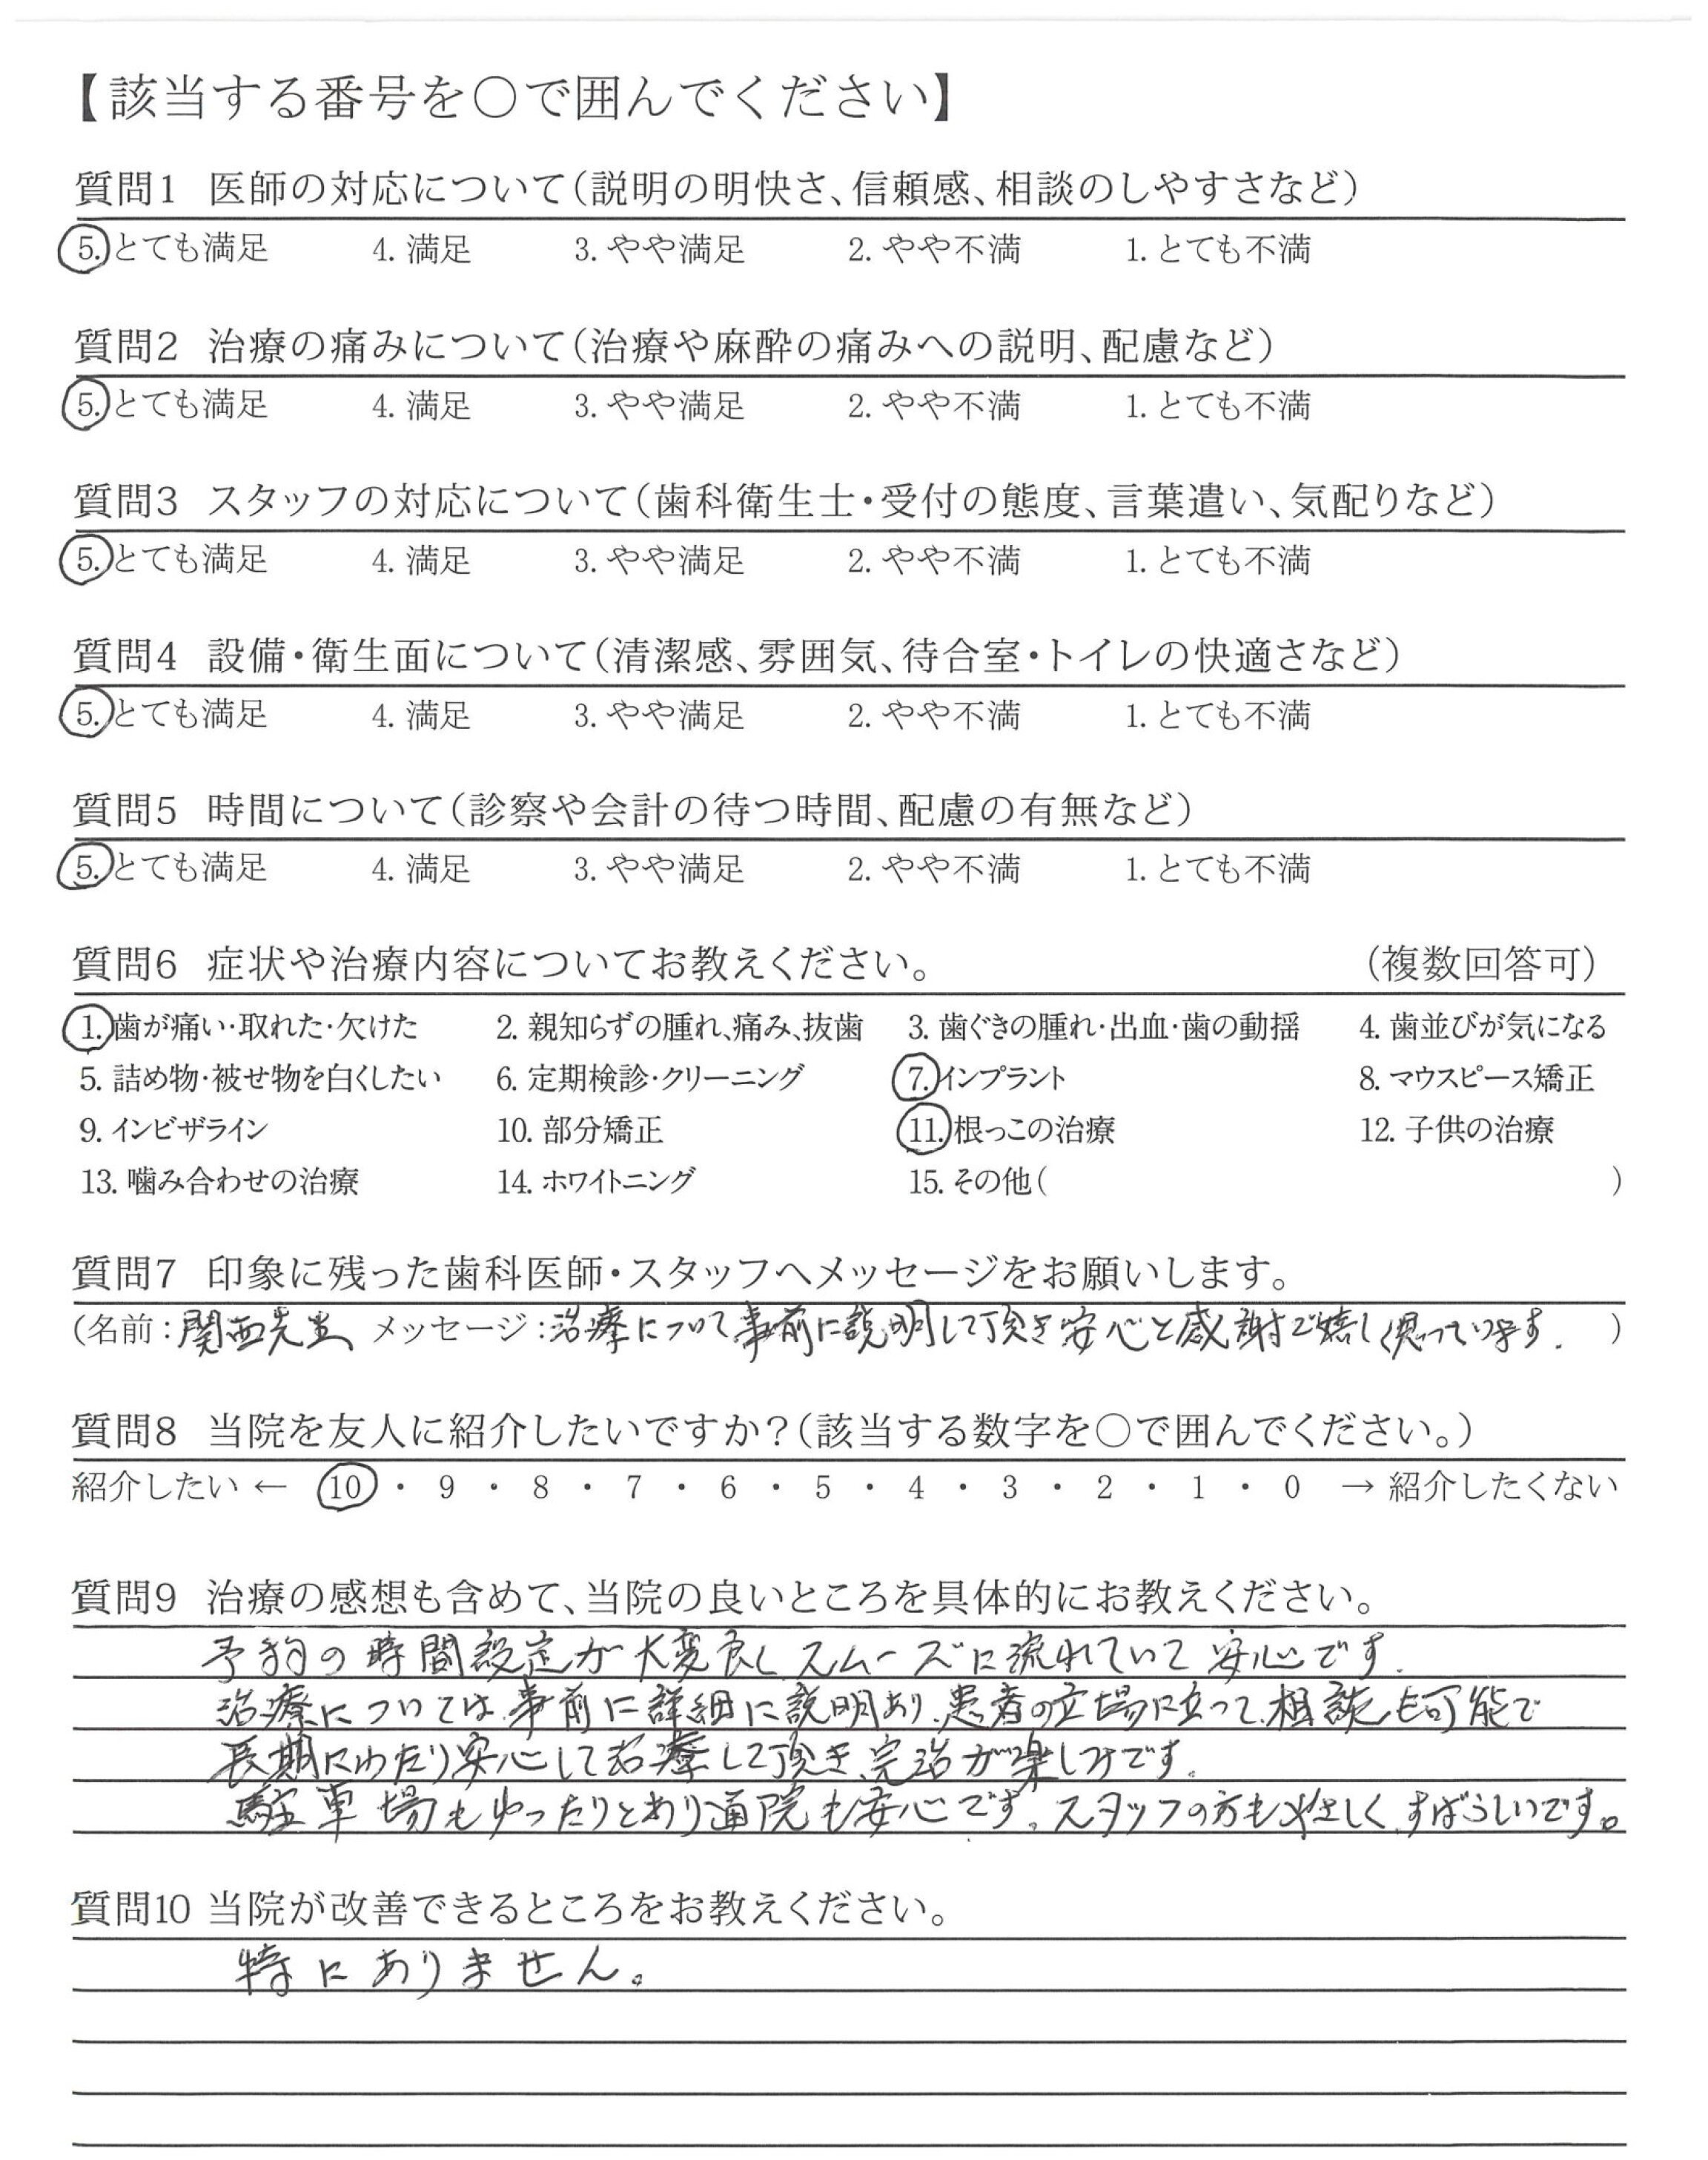 【該当する番号を○で囲んでください】
質問1 医師の対応について(説明の明快さ、信頼感、相談のしやすさなど)
5.とても満足 4. 満足 3. やや満足 2. やや不満 1. とても不満
質問2 治療の痛みについて(治療や麻酔の痛みへの説明、配慮など)
5.とても満足 4. 満足 3. やや満足 2. やや不満 1. とても不満
質問3 スタッフの対応について(歯科衛生士・受付の態度、言葉遣い、気配りなど)
5.とても満足 4. 満足 3. やや満足 2. やや不満 1. とても不満
質問4 設備・衛生面について(清潔感、雰囲気、待合室・トイレの快適さなど)
5.とても満足 4. 満足 3. やや満足 2. やや不満 1. とても不満
質問5 時間について(診察や会計の待つ時間、配慮の有無など)
5.とても満足 4. 満足 3. やや満足 2. やや不満 1. とても不満
質問6 症状や治療内容についてお教えください。 (複数回答可)
1.歯が痛い・取れた・欠けた 2. 親知らずの腫れ、痛み、抜歯 3. 歯ぐきの腫れ・出血・歯の動揺 4. 歯並びが気になる
5. 詰め物・被せ物を白くしたい 6. 定期検診・クリーニング 7.インプラント 8. マウスピース矯正
9. インビザライン 10. 部分矯正 11.根っこの治療 12. 子供の治療
13. 噛み合わせの治療 14. ホワイトニング 15. その他( )
質問7 印象に残った歯科医師・スタッフへメッセージをお願いします。
(名前:関西先生 メッセージ:治療について事前に説明して頂き安心と感謝で嬉しく思っています. )
質問8 当院を友人に紹介したいですか?(該当する数字を○で囲んでください。)
紹介したい ← 10 ・ 9 ・ 8 ・ 7 ・ 6 ・ 5 ・ 4 ・ 3 ・ 2 ・ 1 ・ 0 → 紹介したくない
質問9 治療の感想も含めて、当院の良いところを具体的にお教えください。
予約の時間設定が大変良くスムーズに流れていて安心です.
治療については、事前に詳細に説明あり、患者の立場に立って、相談も可能で
長期にわたり安心して治療して頂き、完治が楽しみです。
駐車場もゆったりとあり通院も安心です。スタッフの方もやさしく、すばらしいです。
質問10 当院が改善できるところをお教えください。
特にありません。